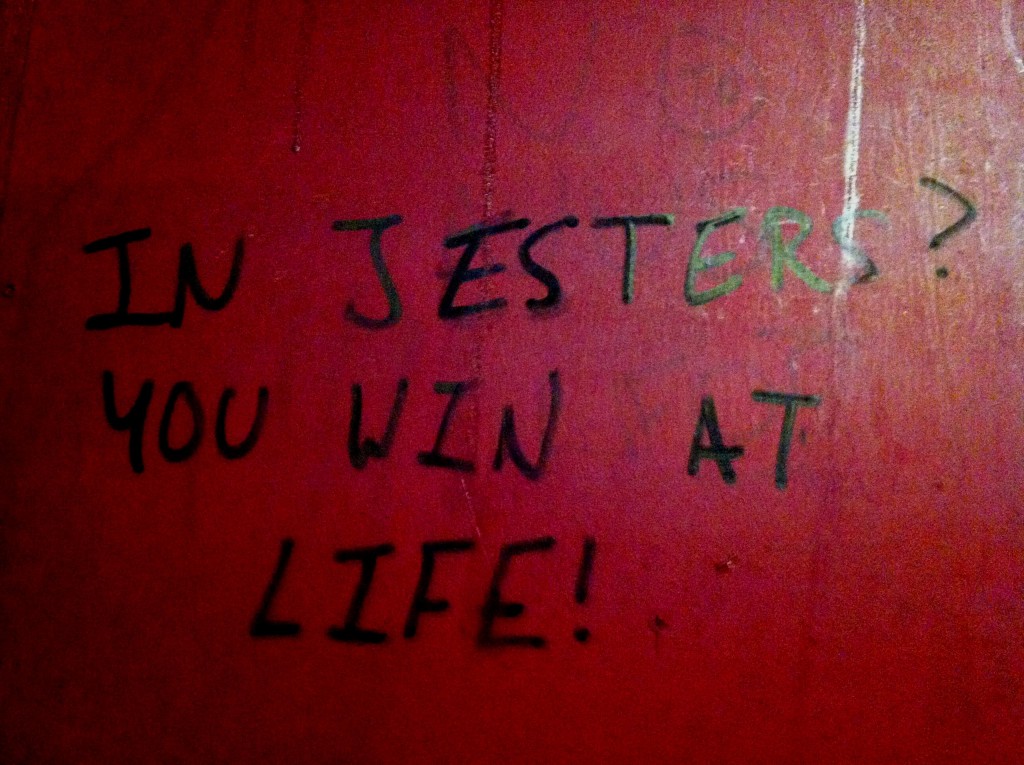 IN JESTERS?
YOU WIN AT
LIFE!